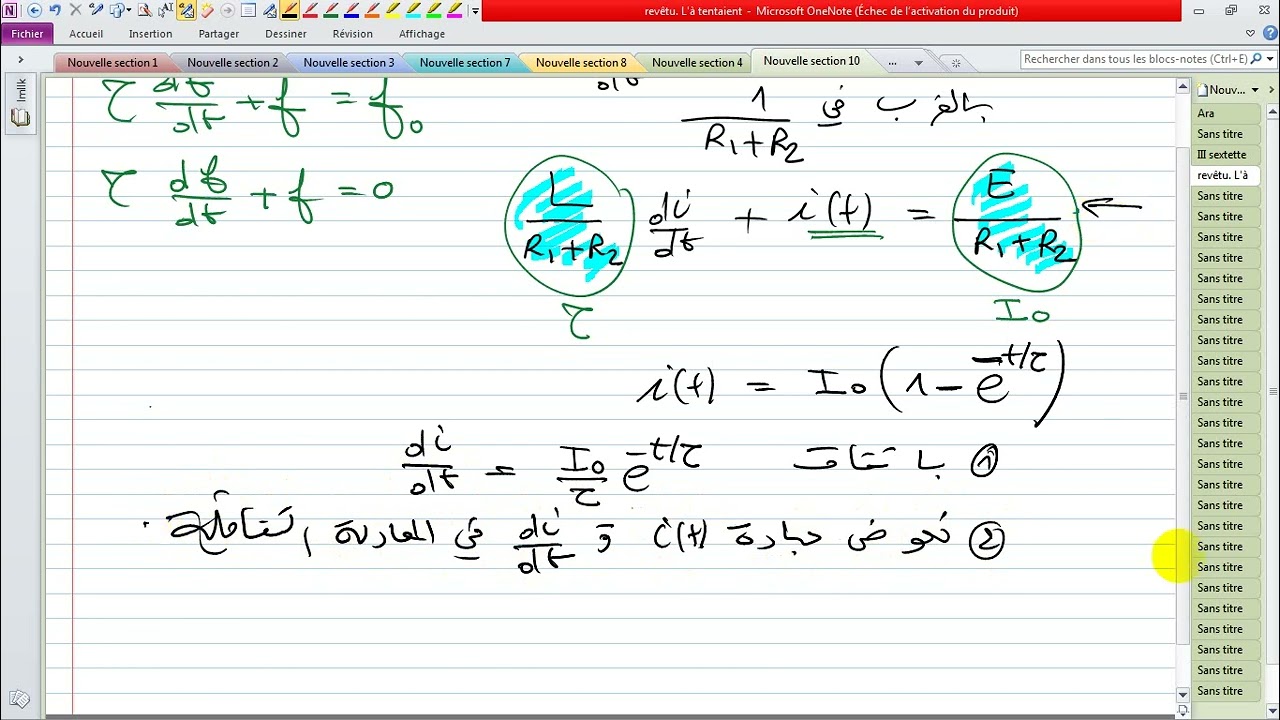 revêtu. L'à tentaient - Microsoft OneNote (Échec de l'activation du produit)
Fichier Accueil Insertion Partager Dessiner Révision Affichage
Nouvelle section 1 Nouvelle section 2 Nouvelle section 3 Nouvelle section 7 Nouvelle section 8 Nouvelle section 4 Nouvelle section 10 ...
Rechercher dans tous les blocs-notes (Ctrl+E)
Imik
τ df/dt + f = f₀
τ df/dt + f = 0
بالضرب في 1/(R₁+R₂)
L/(R₁+R₂) di/dt + i(t) = E/(R₁+R₂) ←
τ
I₀
i(t) = I₀(1 - e^(-t/τ))
① باشتقاق di/dt = I₀/τ e^(-t/τ)
② نعوض عبارة i(t) و di/dt في المعادلة التفاضلية.
Nouv...
Ara
Sans titre
III sextette
revêtu. L'à
Sans titre
Sans titre
Sans titre
Sans titre
Sans titre
Sans titre
Sans titre
Sans titre
Sans titre
Sans titre
Sans titre
Sans titre
Sans titre
Sans titre
Sans titre
Sans titre
Sans titre
Sans titre
Sans titre
Sans titre
Sans titre
Sans titre
Sans titre
Sans titre
Sans titre